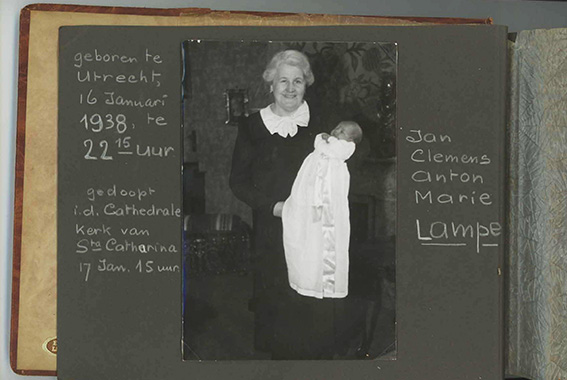 geboren te
Utrecht,
16 Januari
1938, te
22 15 uur
gedoopt
i.d. Cathedrale
Kerk van
Sta Catharina
17 Jan. 15 uur
Jan
Clemens
Anton
Marie
Lampe